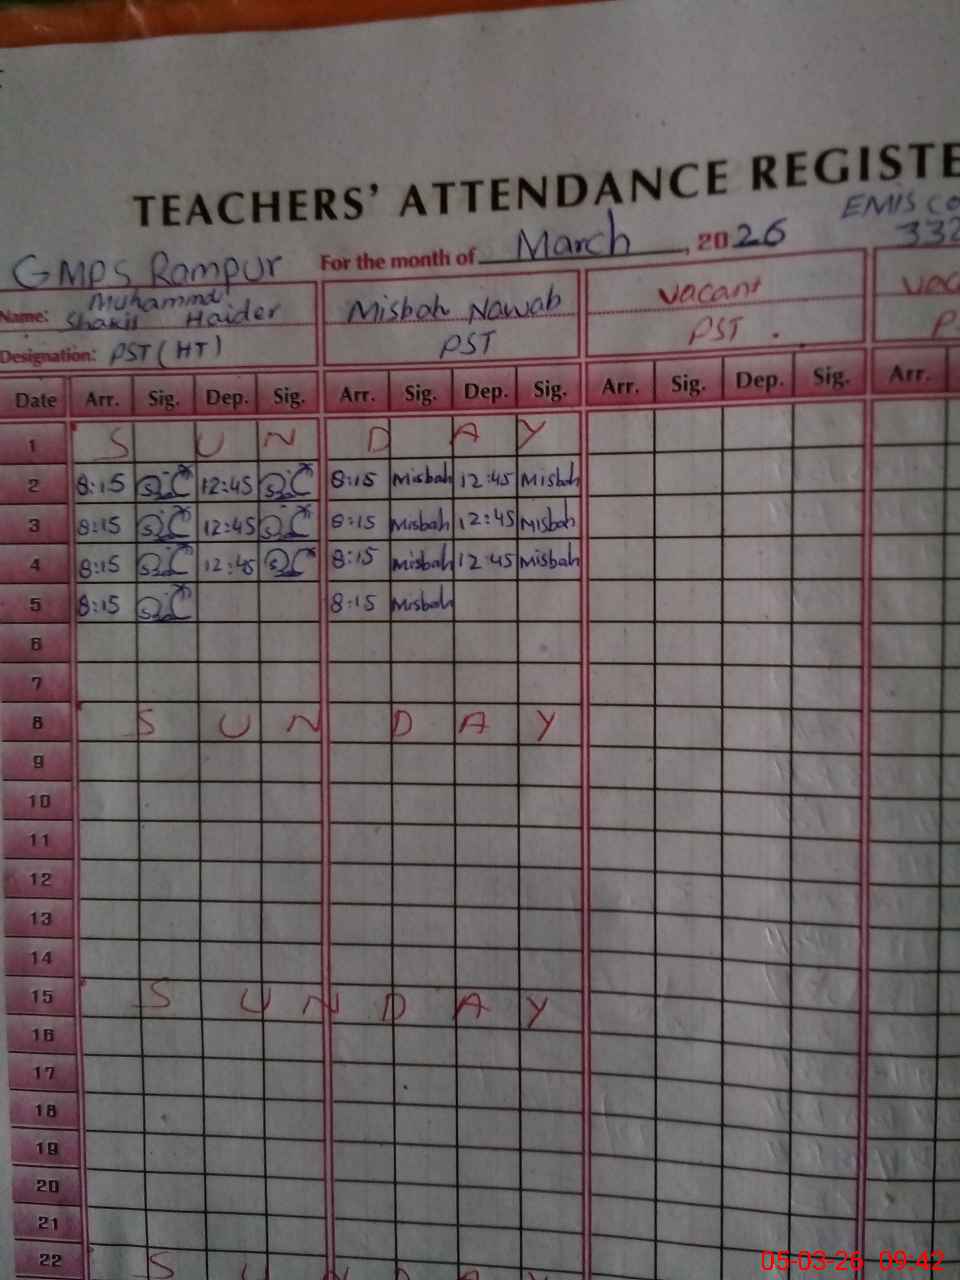 TEACHERS' ATTENDANCE REGISTE
EMIS Co
332
GMPS Rampur For the month of March, 2026
Name: Muhammd Shakil Haider Misbah Nawab Vacant Vac
Designation: PST (HT) PST PST. P
Date Arr. Sig. Dep. Sig. Arr. Sig. Dep. Sig. Arr. Sig. Dep. Sig. Arr.
1 S U N D A Y
2 8:15 12:45 8:15 Misbah 12:45 Misbah
3 8:15 12:45 8:15 Misbah 12:45 Misbah
4 8:15 12:45 8:15 Misbah 12:45 Misbah
5 8:15 8:15 Misbah
6
7
8 S U N D A Y
9
10
11
12
13
14
15 S U N D A Y
16
17
18
19
20
21
22 S U N D A Y
05-03-26 09:42